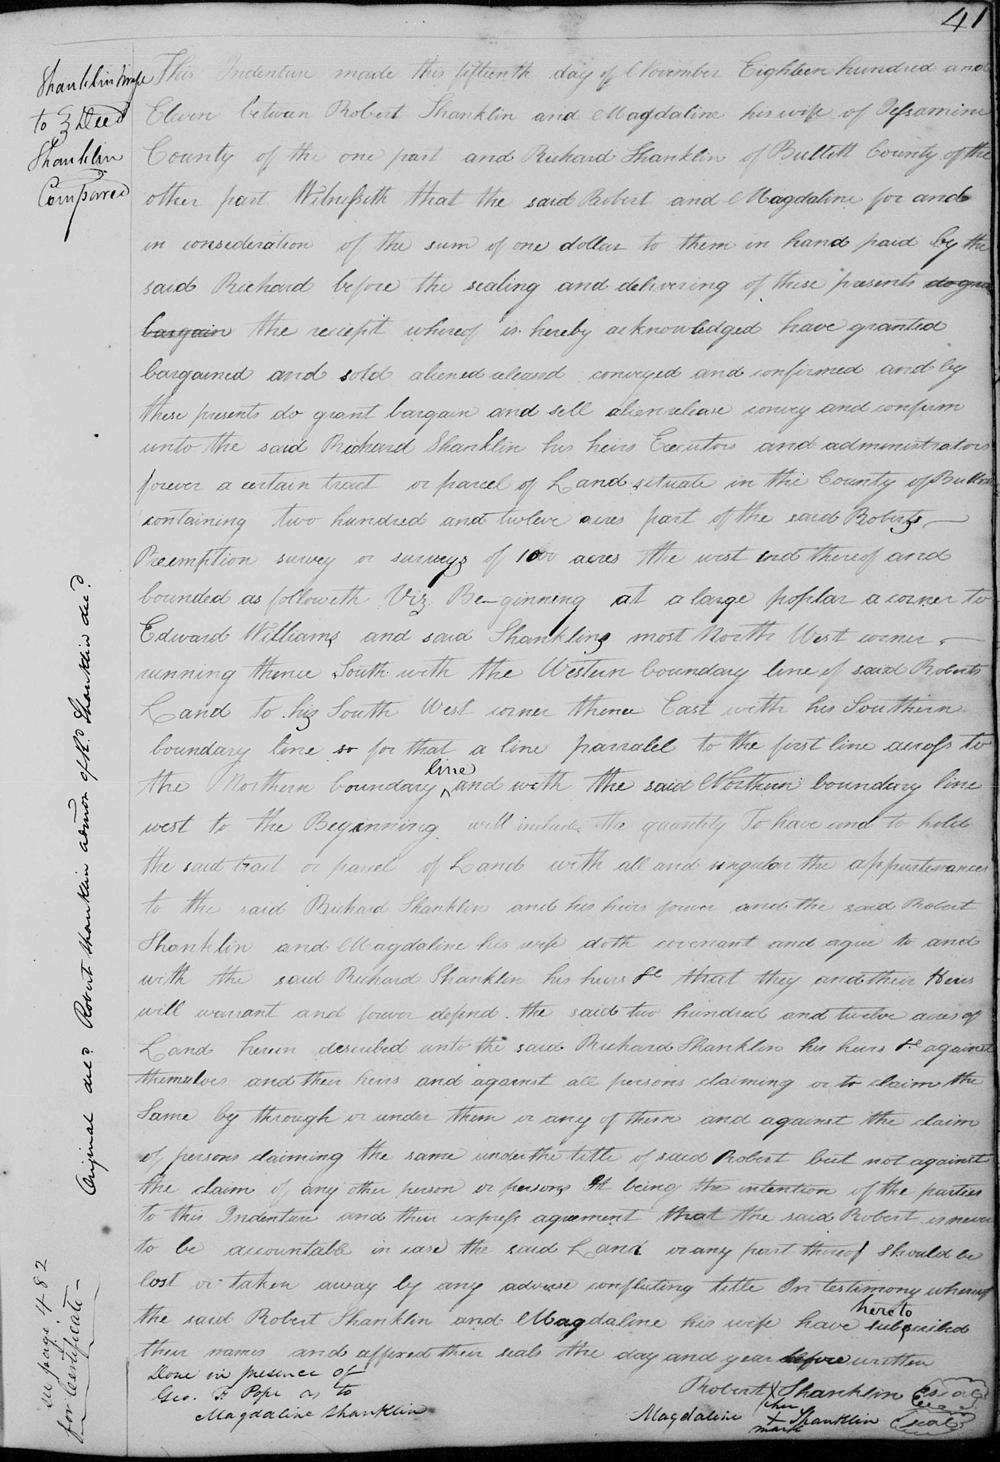 41
Shanklin & wife
to } Deed
Shanklin
Compared
This Indenture made this fifteenth day of November Eighteen hundred and
Eleven between Robert Shanklin and Magdaline his wife of Jessamine
County of the one part and Richard Shanklin of Bullitt County of the
other part Witnesseth that the said Robert and Magdaline for and
in consideration of the sum of one dollar to them in hand paid by the
said Richard before the sealing and delivering of these presents do gran
bargain the receipt whereof is hereby acknowledged have granted
bargained and sold aliened releasd conveyed and confirmed and by
these presents do grant bargain and sell alien release convey and confirm
unto the said Richard Shanklin his heirs Executors and administrators
forever a certain tract or parcel of Land situate in the County of Bullitt
containing two hundred and twelve acres part of the said Roberts
Preemption survey or surveys of 1000 acres the west end thereof and
bounded as followeth Viz Be-ginning at a large poplar a corner to
Edward Williams and said Shanklins most North West corner
running thence South with the Western boundary line of said Roberts
Land to his South West corner thence East with his Southern
boundary line so far that a line parralel to the first line across to
the Northern boundary ^line and with the said Northern boundary line
west to the Beginning will include the quantity To have and to hold
the said tract or parcel of Land with all and singular the appurtenances
to the said Richard Shanklin and his heirs forever and the said Robert
Shanklin and Magdaline his wife doth covenant and agree to and
with the said Richard Shanklin his heirs &c that they and their Heirs
will warrant and forever defend the said two hundred and twelve acres of
Land herein described unto the said Richard Shanklin his heirs &c against
themselves and their heirs and against all persons claiming or to claim the
Same by through or under them or any of them and against the claim
of persons claiming the same under the title of said Robert but not against
the claim of any other person or persons It being the intention of the parties
to this Indenture and their express agreement that the said Robert is never
to be accountable in case the said Land or any part thereof should be
lost or taken away by any adverse conflicting title In testimony whereof
the said Robert Shanklin and Magdaline his wife have hereto subscribed
their names and affixed their seals the day and year before written
Done in presence of
Geo. F Pope as to
Magdaline Shanklin
Robert X Shanklin (seal)
her
Magdaline X Shanklin (seal)
mark
Original deld Robert Shanklin admor of Rd Shanklin decd
in page 482
for Certificate